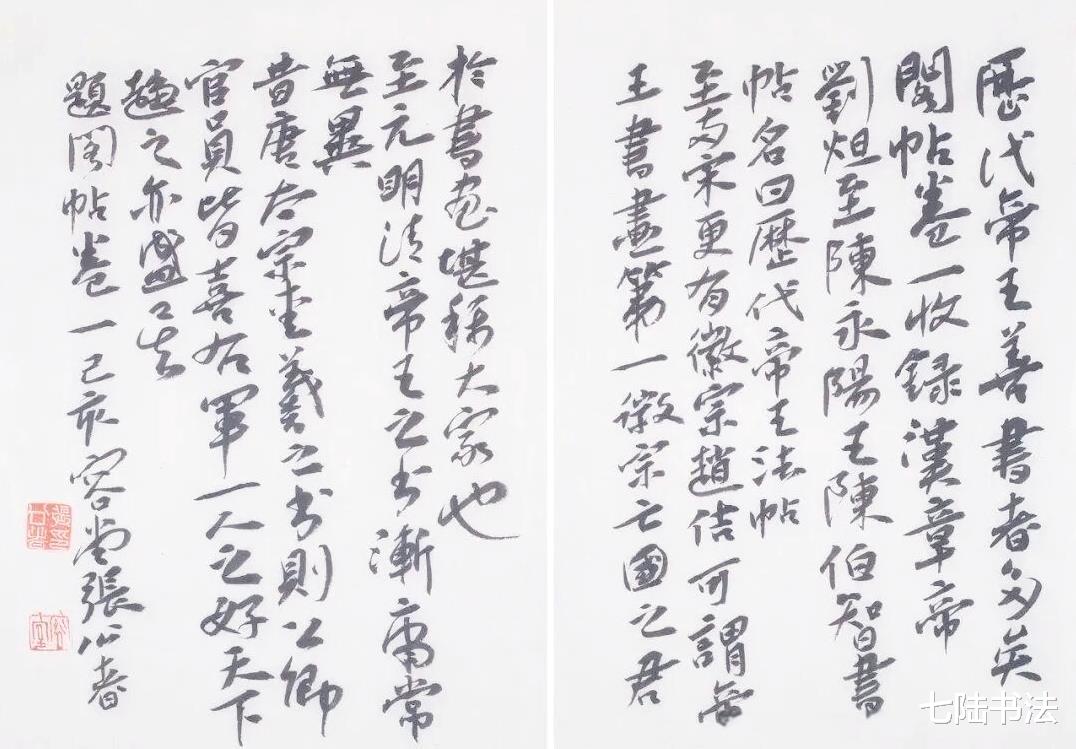 歷代帝王善書者多矣
閣帖卷一收録漢章帝
劉炟至陳永陽王陳伯智書
帖名曰歷代帝王法帖
至南宋更有徽宗趙佶可謂帝
王書畫第一徽宗亡國之君
於書畫堪稱大家也
至元明清帝王之書漸庸常
無異
昔唐太宗愛羲之書則公卿
官員皆喜右軍一人之好天下
趨之亦盛已矣
題閣帖卷一己亥容堂張公者
七陆书法